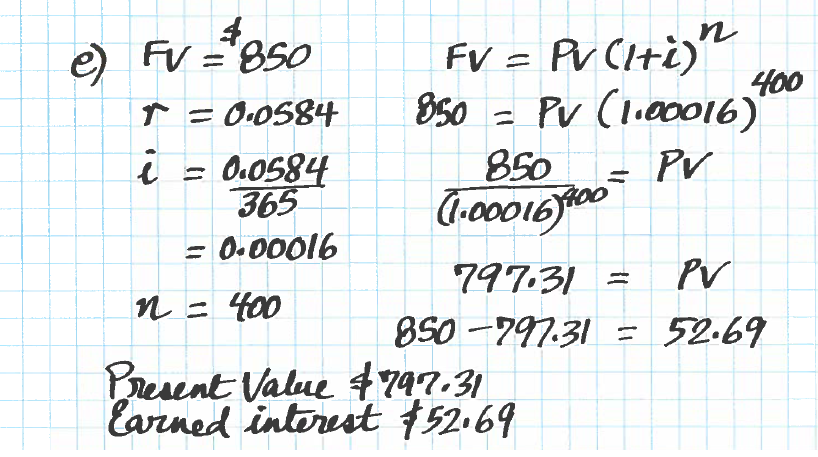 e) FV = $850
r = 0.0584
i = 0.0584/365
= 0.00016
n = 400
FV = PV(1+i)^n
850 = PV(1.00016)^400
850/(1.00016)^400 = PV
797.31 = PV
850 - 797.31 = 52.69
Present Value $797.31
Earned interest $52.69